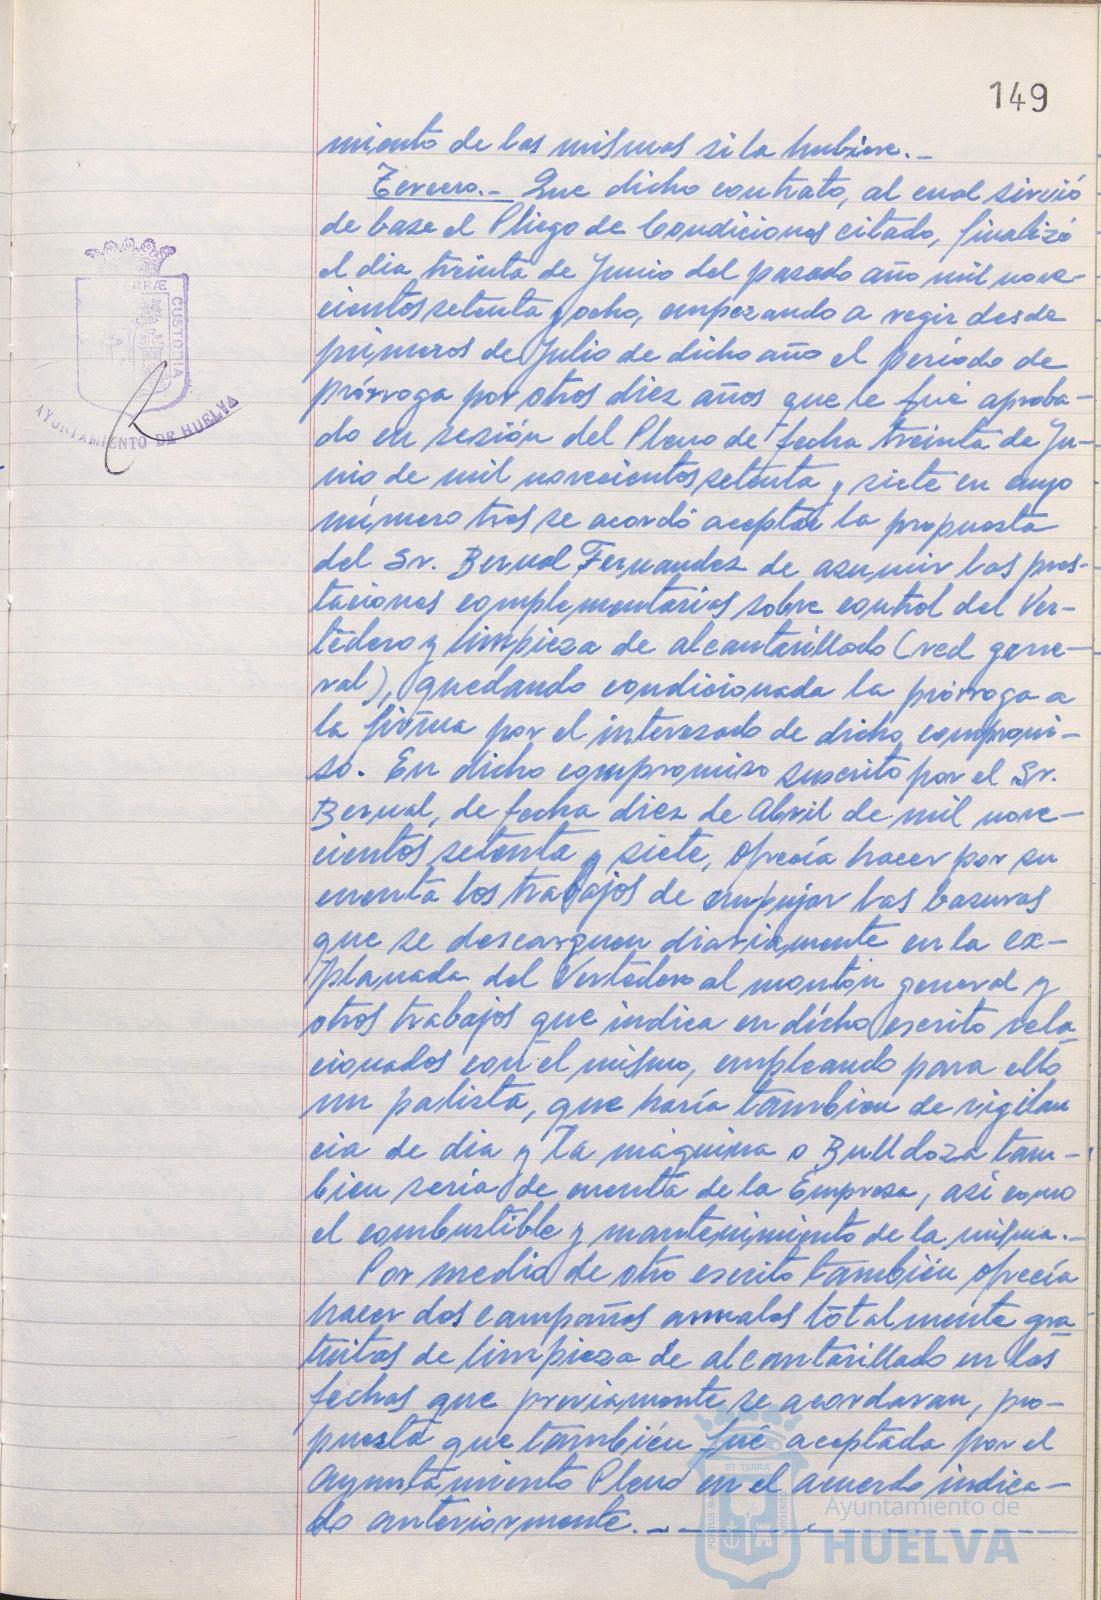 149
miento de las mismas si la hubiere.-
Tercero.- Que dicho contrato, al cual sirvió
de base el Pliego de Condiciones citado, finalizó
el dia treinta de Junio del pasado año mil nove-
cientos setenta y ocho, empezando a regir desde
primeros de Julio de dicho año el período de
prórroga por otros diez años que le fué aproba-
do en sesión del Pleno de fecha treinta de Ju-
nio de mil novecientos setenta y siete en cuyo
número tres se acordó aceptar la propuesta
del Sr. Bernal Fernandez de asumir las pres-
taciones complementarias sobre control del Ver-
tedero y limpieza de alcantarillado (red gene-
ral), quedando condicionada la prórroga a
la firma por el interesado de dicho compromi-
so. En dicho compromiso suscrito por el Sr.
Bernal, de fecha diez de Abril de mil nove-
cientos setenta y siete, ofrecía hacer por su
cuenta los trabajos de empujar las basuras
que se descarguen diariamente en la ex-
planada del Vertedero al montón general y
otros trabajos que indica en dicho escrito rela
cionados con el mismo, empleando para ello
un palista, que haría tambien de vigilan
cia de dia y la máquina o Bulldoza tam-
bien seria de cuenta de la Empresa, así como
el combustible y mantenimiento de la misma.-
Por medio de otro escrito también ofrecía
hacer dos campañas anuales totalmente gra
tuitas de limpieza de alcantarillado en las
fechas que previamente se acordaran, pro-
puesta que también fué aceptada por el
Ayuntamiento Pleno en el acuerdo indica-
do anteriormente.-
TERRÆ
CUSTODIA
AYUNTAMIENTO DE HUELVA
ET TERRÆ
Ayuntamiento de
HUELVA